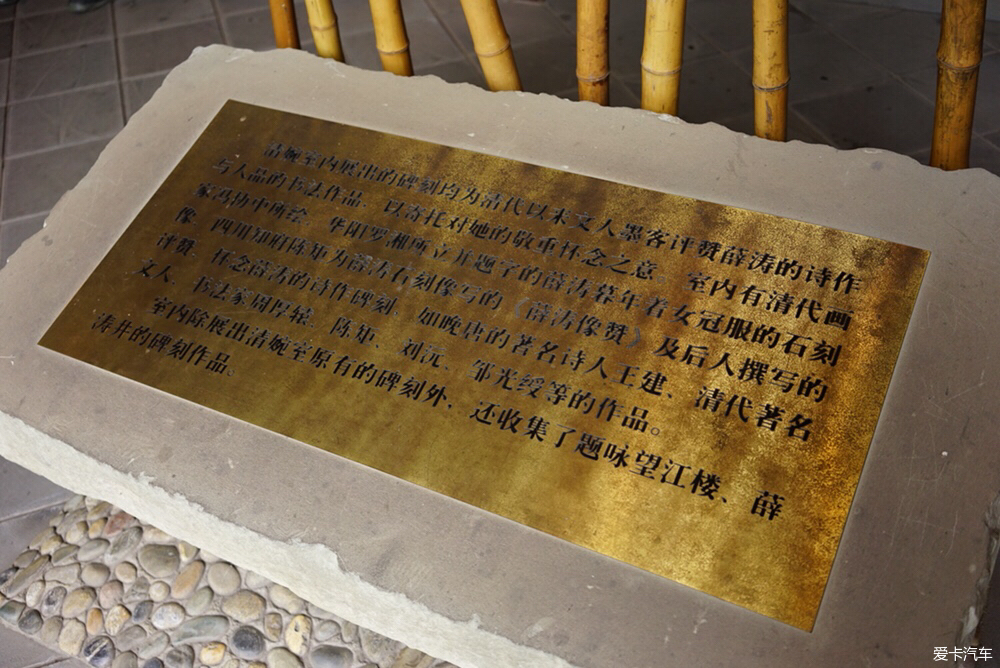 清婉室内展出的碑刻均为清代以来文人墨客评赞薛涛的诗作
与人品的书法作品，以寄托对她的敬重怀念之意。室内有清代画
家冯扬中所绘、华阳罗湘所立并题字的薛涛暮年着女冠服的石刻
像，四川知府陈矩为薛涛石刻像写的《薛涛像赞》及后人撰写的
评赞、怀念薛涛的诗作碑刻，如晚唐的著名诗人王建、清代著名
文人、书法家周厚辕、陈矩、刘沅、邹光绶等的作品。
室内除展出清婉室原有的碑刻外，还收集了题咏望江楼、薛
涛井的碑刻作品。
爱卡汽车